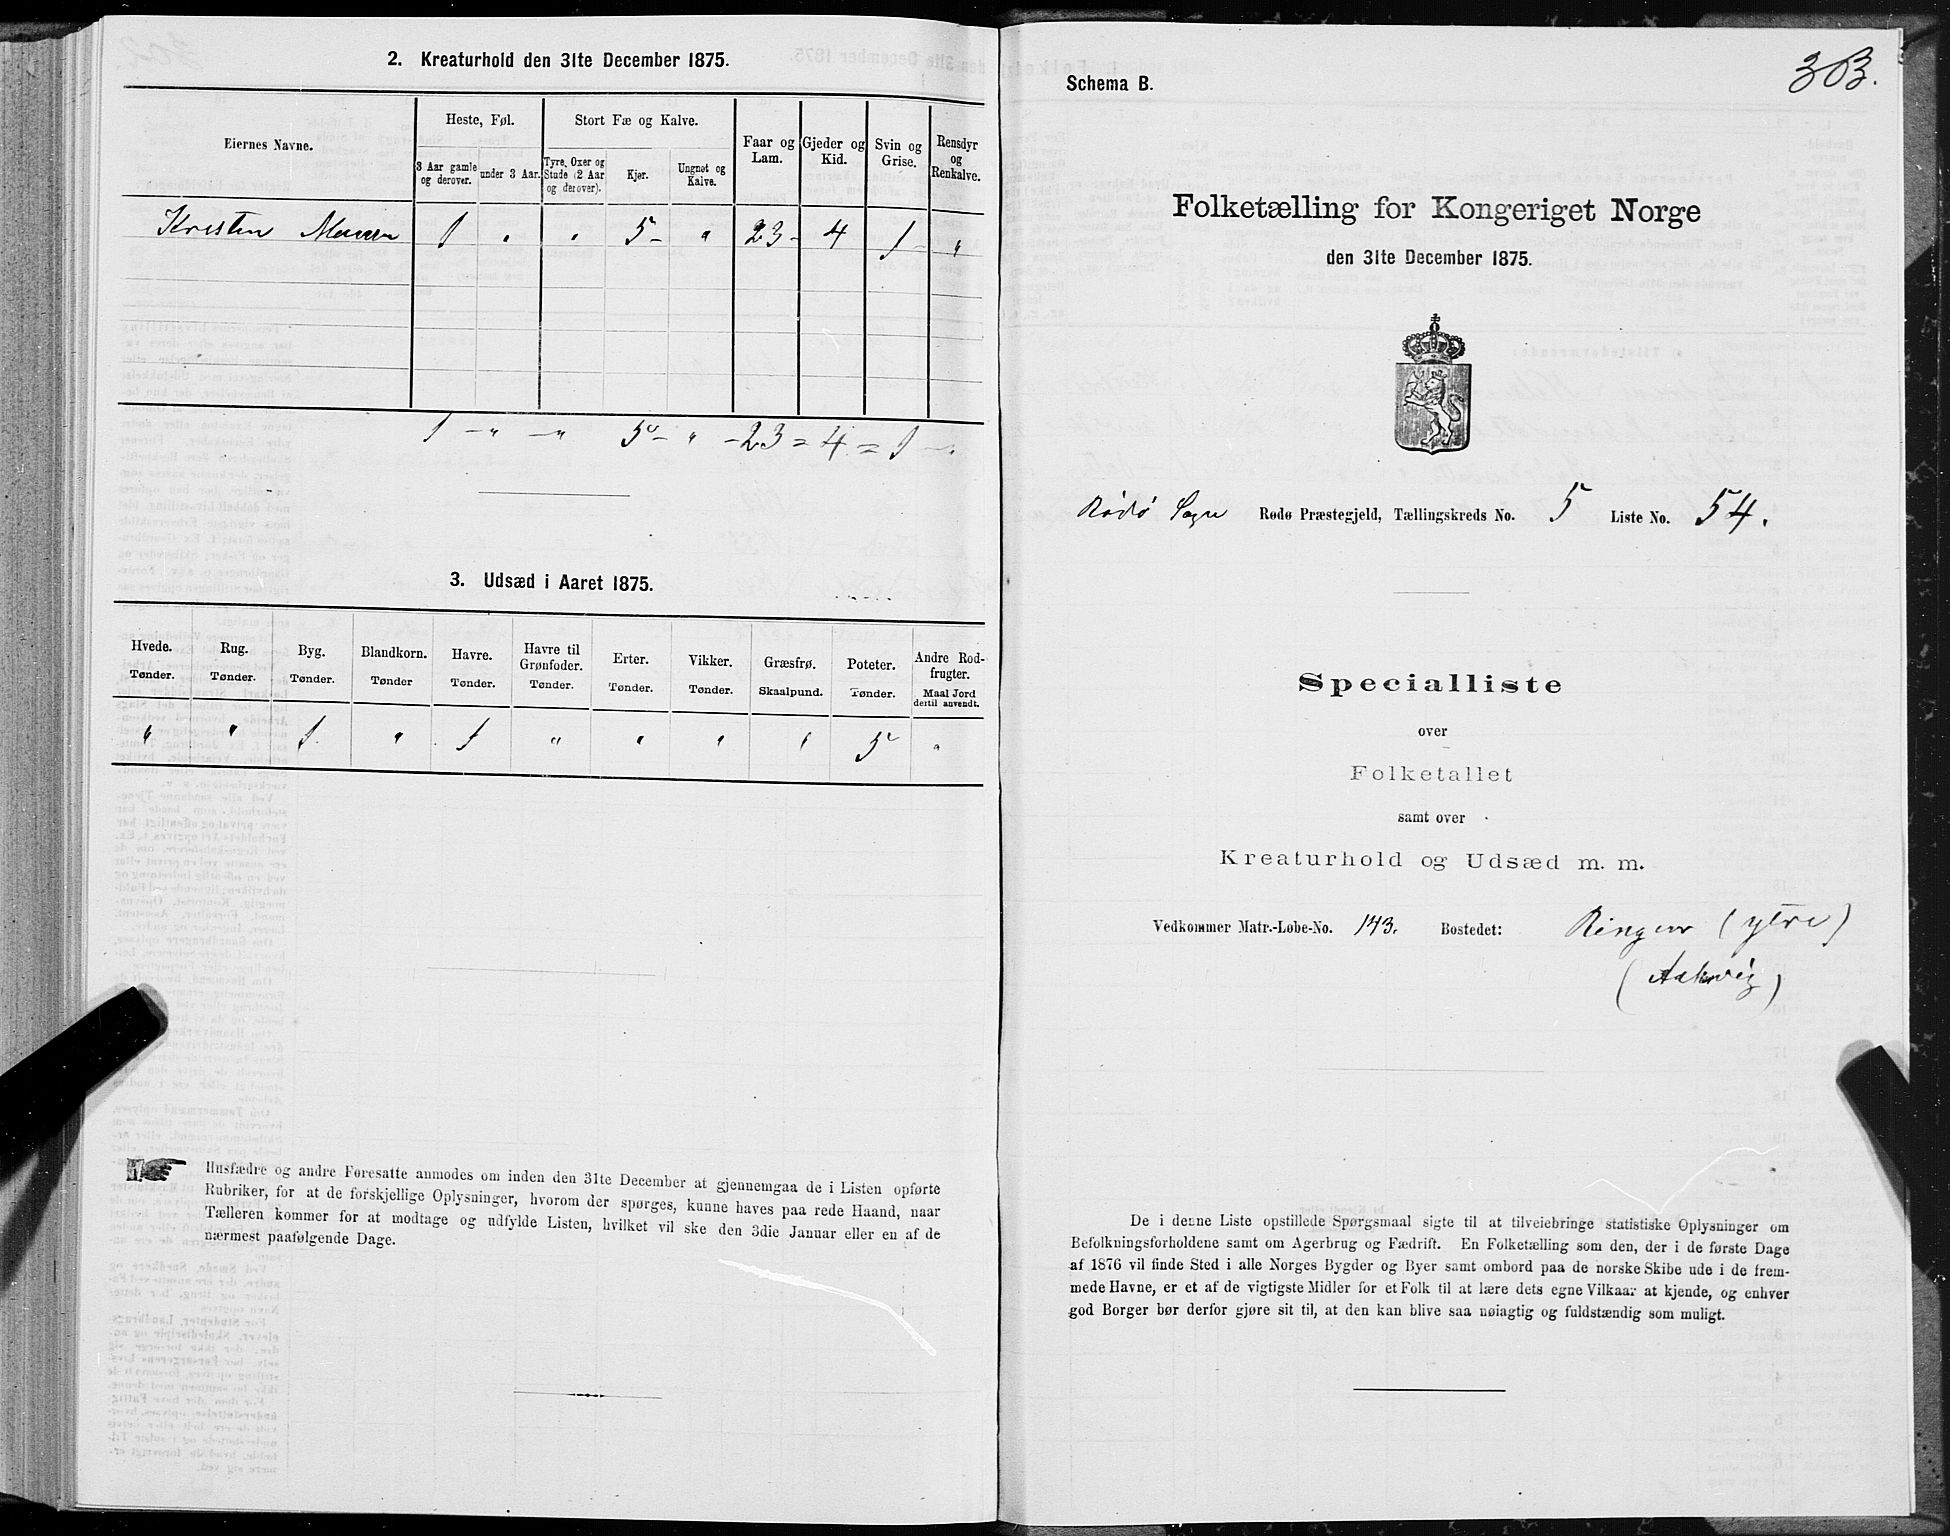 2. Kreaturhold den 31te December 1875.
Eiernes Navne.
Heste, Føl.
Stort Fæ og Kalve.
Faar og Lam.
Gjeder og Kid.
Svin og Grise.
Rensdyr og Renkalve.
3 Aar gamle og derover.
under 3 Aar.
Tyre, Oxer og Stude (2 Aar og derover).
Kjør.
Ungnøt og Kalve.
Kristen 1 " " 5 - " 23 - 4 1 - "
1 - " - " 5 - " - 23 = 4 = 1 - "
3. Udsæd i Aaret 1875.
Hvede. Rug. Byg. Blandkorn. Havre. Havre til Grønfoder. Erter. Vikker. Græsfrø. Poteter. Andre Rodfrugter.
Tønder. Tønder. Tønder. Tønder Tønder. Tønder. Tønder. Tønder. Skaalpund. Tønder. Maal Jord dertil anvendt.
" " 1. " 1 " " " " 5 "
Husfædre og andre Foresatte anmodes om inden den 31te December at gjennemgaa de i Listen opførte
Rubriker, for at de forskjellige Oplysninger, hvorom der spørges, kunne haves paa rede Haand, naar
Tælleren kommer for at modtage og udfylde Listen, hvilket vil ske den 3die Januar eller en af de
nærmest paafølgende Dage.
303.
Schema B.
Folketælling for Kongeriget Norge
den 31te December 1875.
Rødø Sogn Rødø Præstegjeld, Tællingskreds No. 5 Liste No. 54.
Specialliste
over
Folketallet
samt over
Kreaturhold og Udsæd m. m.
Vedkommer Matr.-Løbe-No. 143. Bostedet: Ringen (ytre)
(Aakvig)
De i denne Liste opstillede Spørgsmaal sigte til at tilveiebringe statistiske Oplysninger om
Befolkningsforholdene samt om Agerbrug og Fædrift. En Folketælling som den, der i de første Dage
af 1876 vil finde Sted i alle Norges Bygder og Byer samt ombord paa de norske Skibe ude i de frem-
mede Havne, er et af de vigtigste Midler for et Folk til at lære dets egne Vilkaar at kjende, og enhver
god Borger bør derfor gjøre sit til, at den kan blive saa nøiagtig og fuldstændig som muligt.